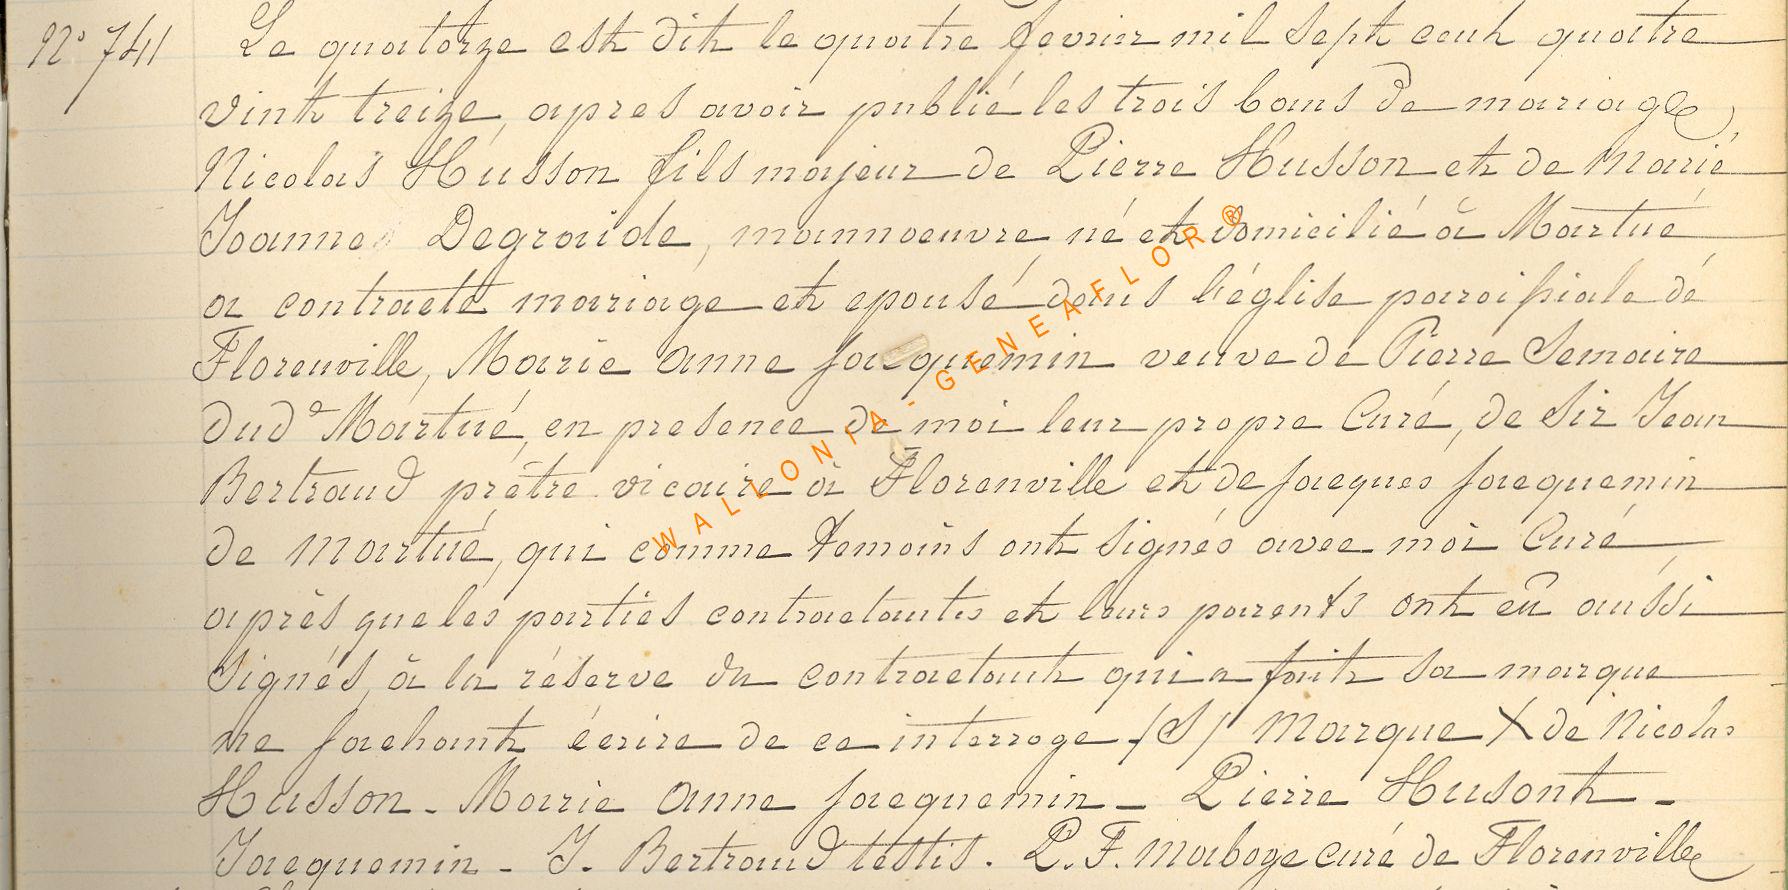 N° 741 Le quatorze est dit le quatre fevrier mil sept cent quatre
vint treize, apres avoir publié les trois bans de mariage,
Nicolas Husson fils majeur de Pierre Husson et de Marie
Joanne Degraide, mannoeuvre né et domicilié à Martué
a contracté mariage et epousé dans l'église paroissiale de
Florenville, Marie Anne Jacquemin veuve de Pierre Semaire
dud° Martué, en presence de moi leur propre Curé, de Sir Jean
Bertrand prêtre vicaire à Florenville et de Jacques Jacquemin
de Martué, qui comme temoins ont signés avec moi Curé
après que les parties contractantes et leurs parents ont eû aussi
signés, à la réserve du contractant qui a fait sa marque
ne sachant écrire de ce interroge (S) Marque X de Nicolas
Husson - Marie Anne Jacquemin - Pierre Husont -
Jacquemin - J. Bertrand testis. P. F. Maboge curé de Florenville
WALLONIA - GENEAFLOR ®